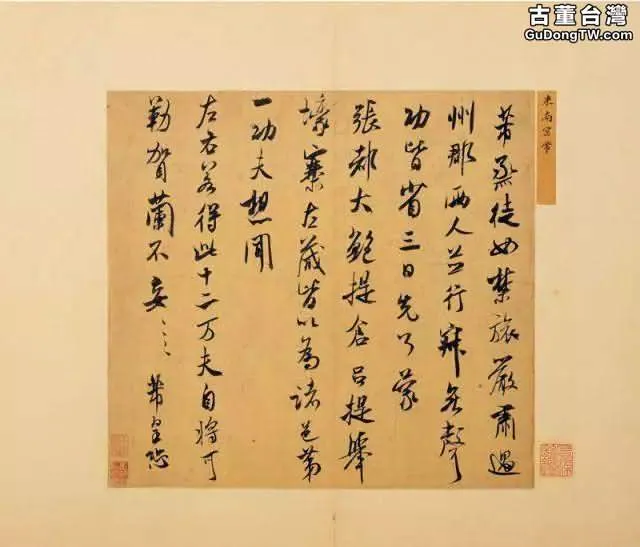 古董台灣
GuDongTW.com
米南宮帖
芾烝徒如禁旅嚴肅過
州郡兩人並行寂無聲
功皆省三日先了蒙
張都大鮑提倉呂提舉
壕寨左藏皆以為諸邑第
一功夫想聞
左右若得此十二万夫自將可
勒賀蘭不妄〻〻芾皇恐